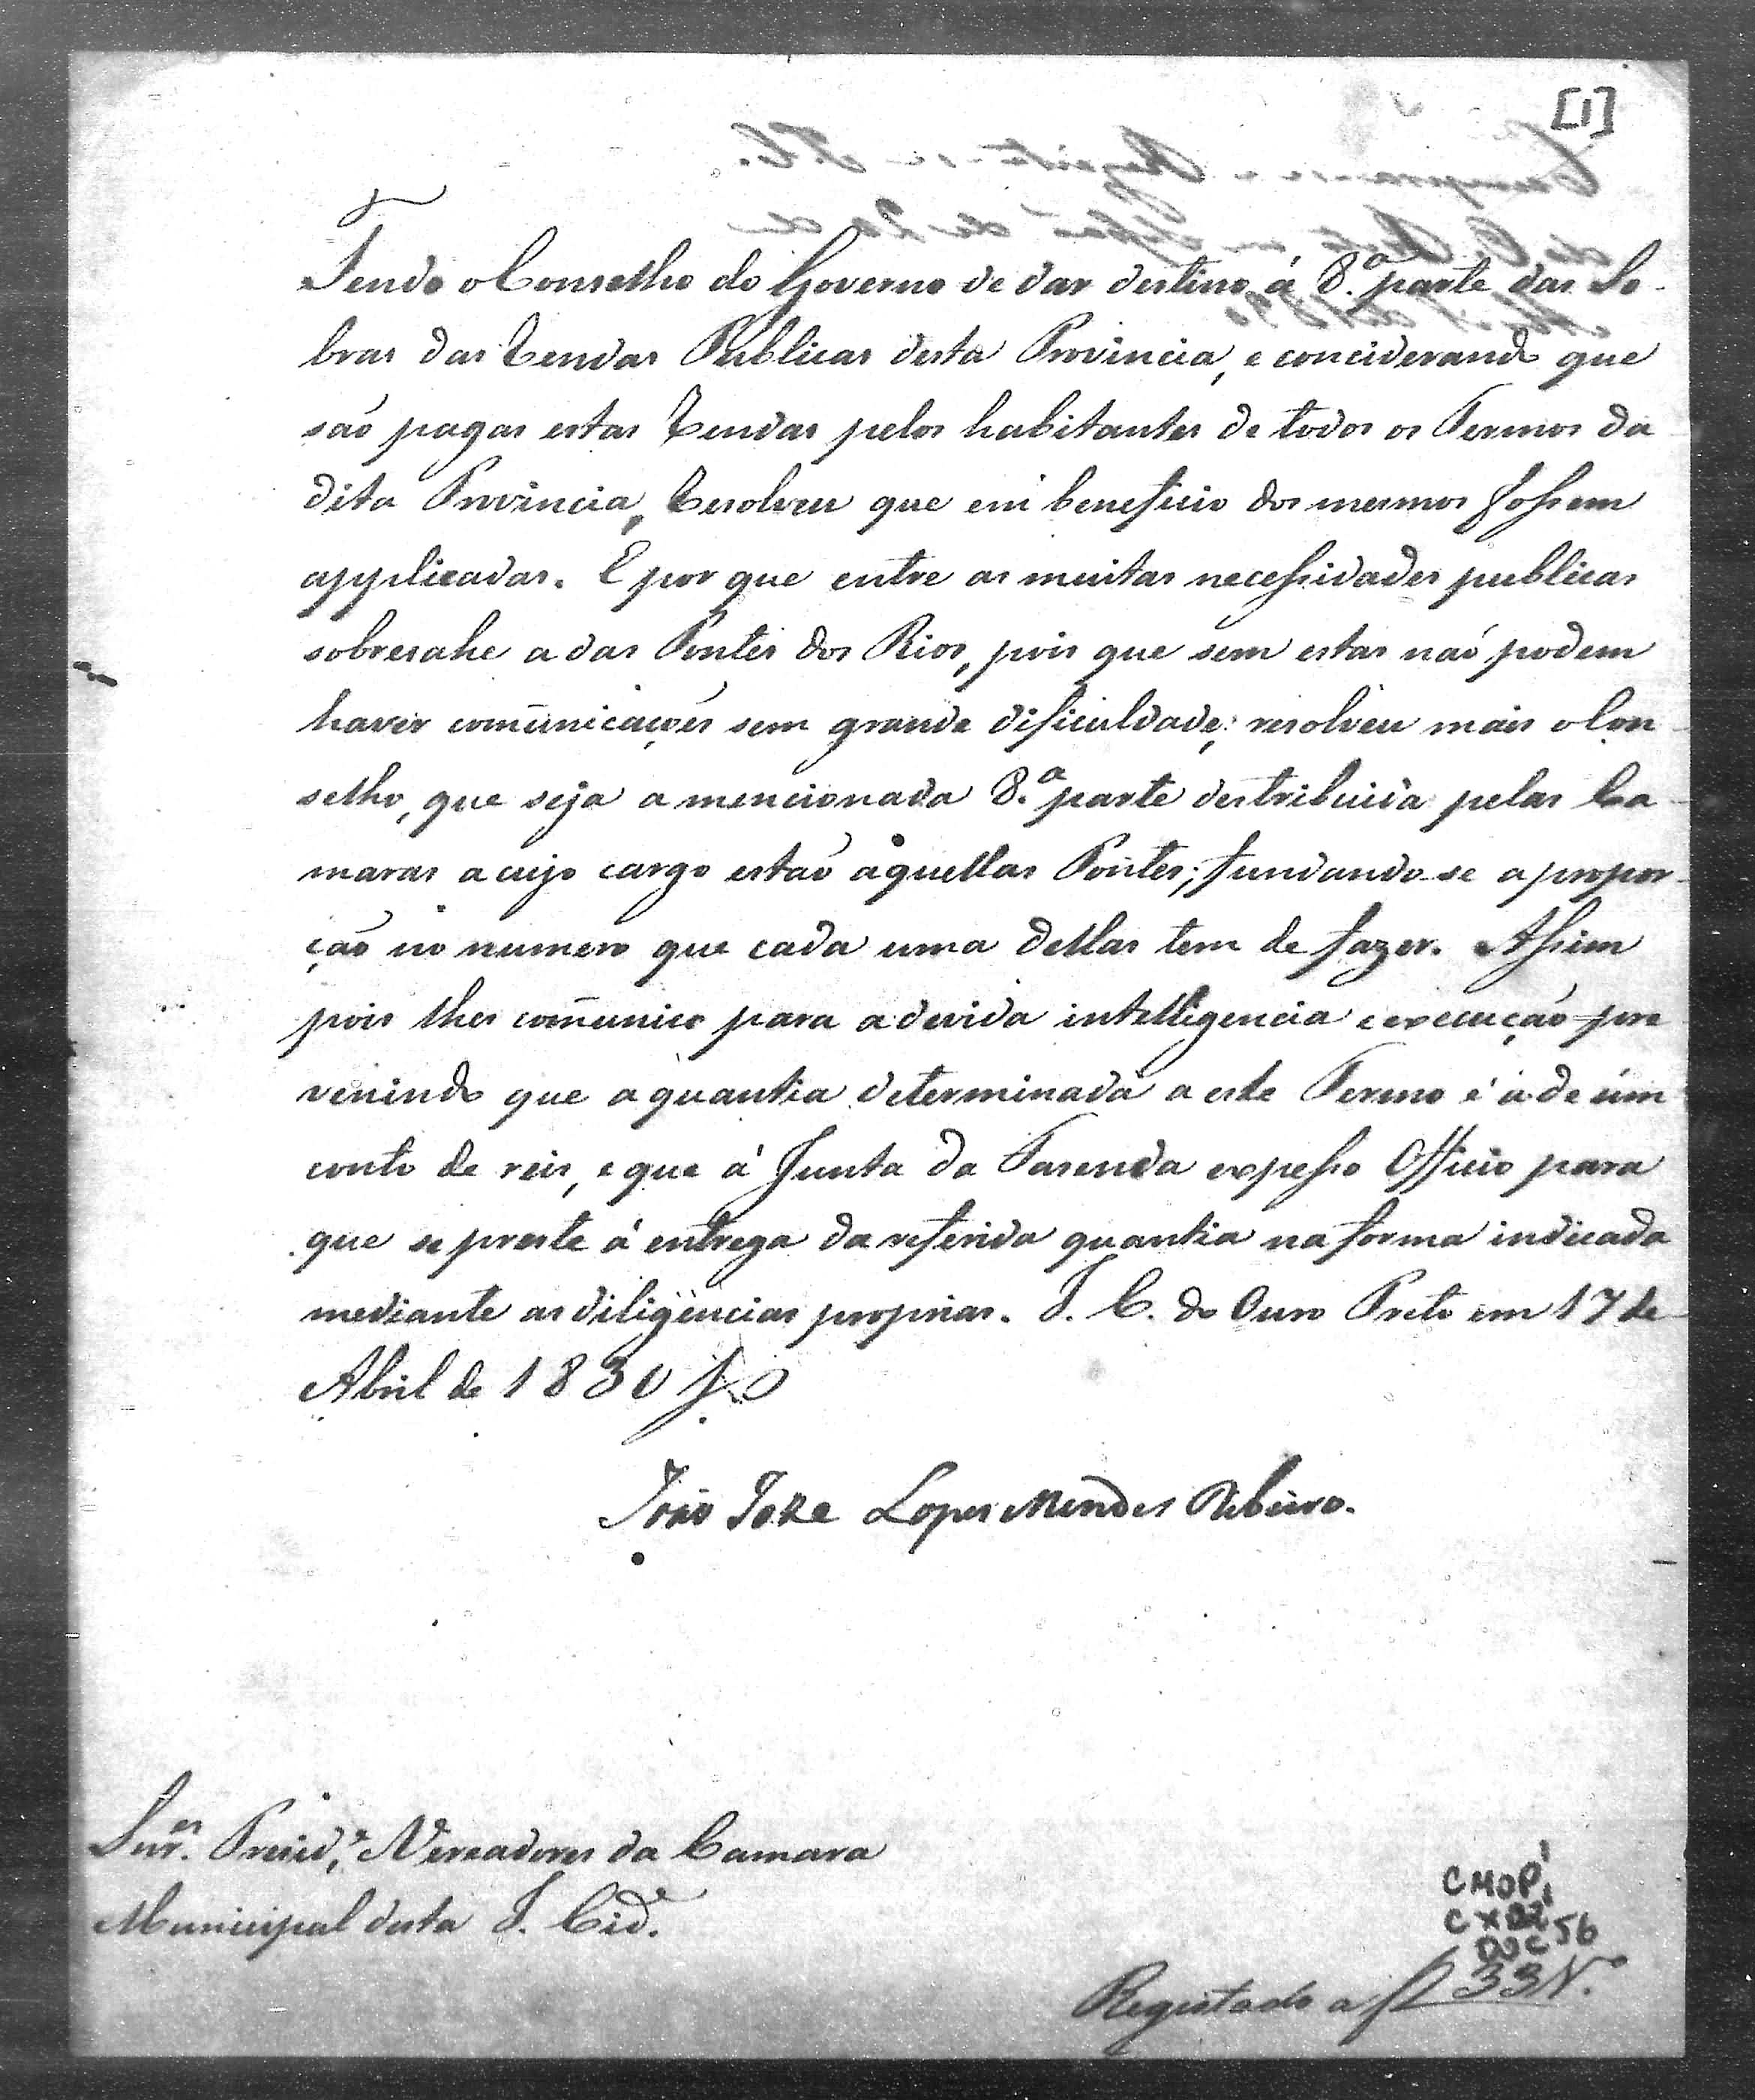 [1]
Tendo o Conselho do Governo de dar destino á 8.ª parte das So-
bras das Rendas Publicas desta Provincia, e conciderando que
são pagas estas Rendas pelos habitantes de todos os Termos da
dita Provincia, Resolveu que em beneficio dos mesmos fossem
applicadas. E por que entre as muitas necessidades publicas
sobresahe a das Pontes dos Rios, pois que sem estas naõ podem
haver comunicações sem grande dificuldade; resolveu mais o Con-
selho, que seja a mencionada 8.ª parte destribuida pelas Ca-
maras a cujo cargo estaõ aquellas Pontes; fundando-se a propor-
ção no numero que cada uma dellas tem de fazer. Assim
pois lhes comunico para a devida intelligencia e execução pre
venindo que a quantia determinada a este Termo é a de um
conto de reis, e que á Junta da Fasenda expesso Officio para
que se preste á entrega da referida quantia na forma indicada
mediante as diligencias proprias. I. C. do Ouro Preto em 17 de
Abril de 1830
João Joze Lopes Mendes Ribeiro.
Snr.es Presid.e, Vereadores da Camara
Municipal desta I. Cid.e
CMOP
CX 02
DOC 56
Registado a f 33 V.º